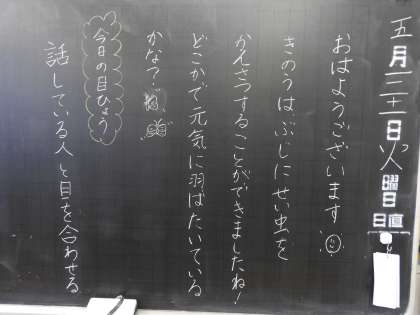 五月三十一日火曜日
日直
おはようございます
きのうはぶじにせい虫を
かんさつすることができましたね!
どこかで元気に羽ばたいている
かな?
今日の目ひょう
話している人と目を合わせる